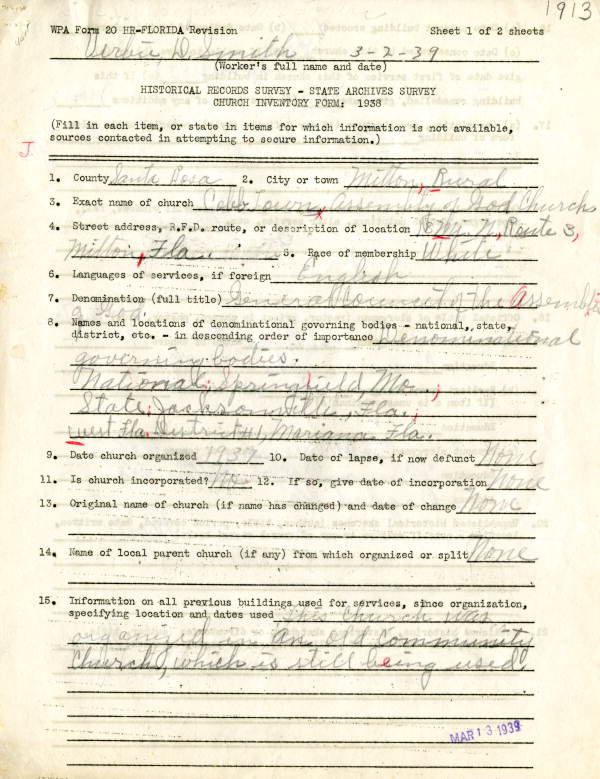 1913
WPA Form 20 HR-FLORIDA Revision Sheet 1 of 2 sheets
D. Smith 3-2-39
(Worker's full name and date)
HISTORICAL RECORDS SURVEY - STATE ARCHIVES SURVEY
CHURCH INVENTORY FORM: 1938
(Fill in each item, or state in items for which information is not available,
sources contacted in attempting to secure information.)
J.
1. County Santa Rosa 2. City or town Milton, Rural
3. Exact name of church Cobb Town, Assembly of God Church
4. Street address, R.F.D. route, or description of location 8 mi. N, Route 3,
Milton, Fla. 5. Race of membership White
6. Languages of services, if foreign English
7. Denomination (full title) General Council of the Assemblies
of God.
8. Names and locations of denominational governing bodies - national, state,
district, etc. - in descending order of importance Denominational
governing bodies.
National; Springfield, Mo.,
State; Jacksonville, Fla.;
West Fla. District #1, Mariana Fla.
9. Date church organized 1937 10. Date of lapse, if now defunct None
11. Is church incorporated? No 12. If so, give date of incorporation None
13. Original name of church (if name has changed) and date of change None
14. Name of local parent church (if any) from which organized or split None
15. Information on all previous buildings used for services, since organization,
specifying location and dates used This church was
organized in an old community
church, which is still being used.
MAR 13 1939